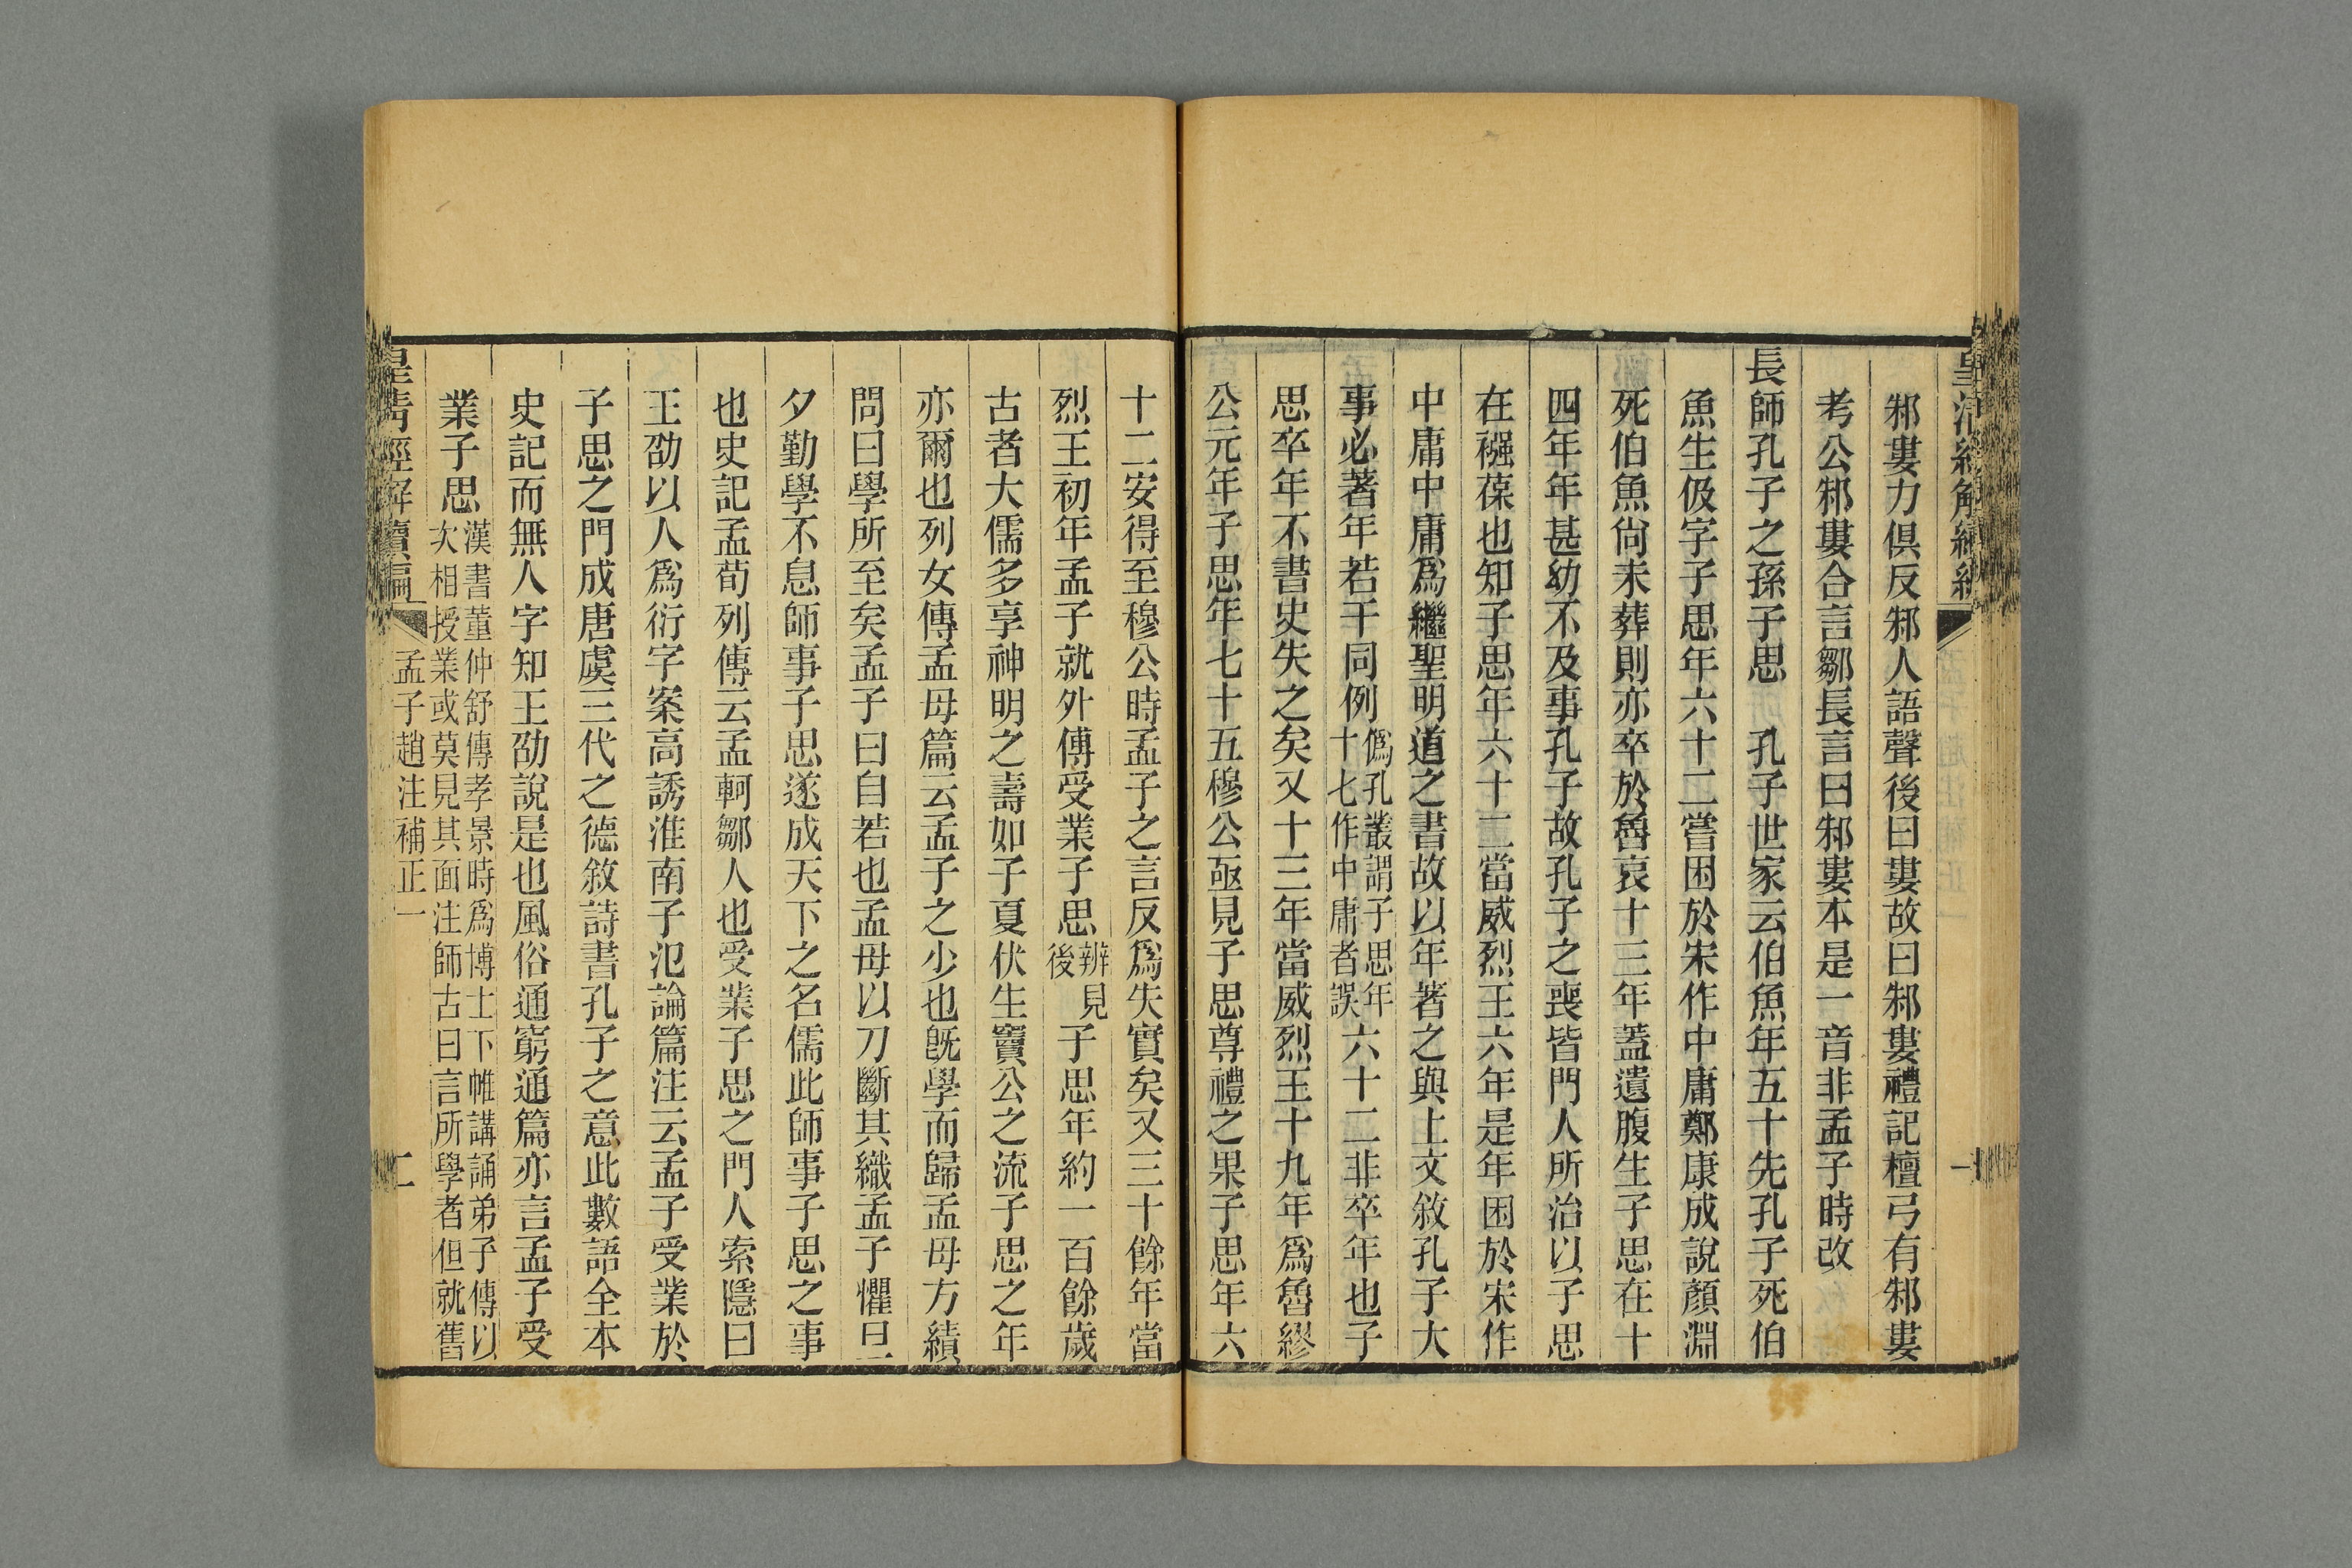 皇清經解續編
邾婁力俱反邾人語聲後曰婁故曰邾婁禮記檀弓有邾婁
考公邾婁合言鄒長言曰邾婁本是一音非孟子時改
長師孔子之孫子思　孔子世家云伯魚年五十先孔子死伯
魚生伋字子思年六十二嘗困於宋作中庸鄭康成說顏淵
死伯魚尙未葬則亦卒於魯哀十三年蓋遺腹生子思在十
四年年甚幼不及事孔子故孔子之喪皆門人所治以子思
在襁葆也知子思年六十二當威烈王六年是年困於宋作
中庸中庸爲繼聖明道之書故以年著之與上文敘孔子大
事必著年若干同例僞孔叢謂子思年十七作中庸者誤六十二非卒年也子
思卒年不書史失之矣又十三年當威烈王十九年爲魯繆
公元年子思年七十五穆公亟見子思尊禮之果子思年六
十二安得至穆公時孟子之言反爲失實矣又三十餘年當
烈王初年孟子就外傅受業子思辨見後子思年約一百餘歲
古者大儒多享神明之壽如子夏伏生竇公之流子思之年
亦爾也列女傳孟母篇云孟子之少也旣學而歸孟母方績
問曰學所至矣孟子曰自若也孟母以刀斷其織孟子懼旦
夕勤學不息師事子思遂成天下之名儒此師事子思之事
也史記孟荀列傳云孟軻鄒人也受業子思之門人索隱曰
王劭以人爲衍字案高誘淮南子氾論篇注云孟子受業於
子思之門成唐虞三代之德敘詩書孔子之意此數語全本
史記而無人字知王劭說是也風俗通窮通篇亦言孟子受
業子思漢書董仲舒傳孝景時爲博士下帷講誦弟子傳以次相授業或莫見其面注師古曰言所學者但就舊
皇清經解續編　孟子趙注補正一　二